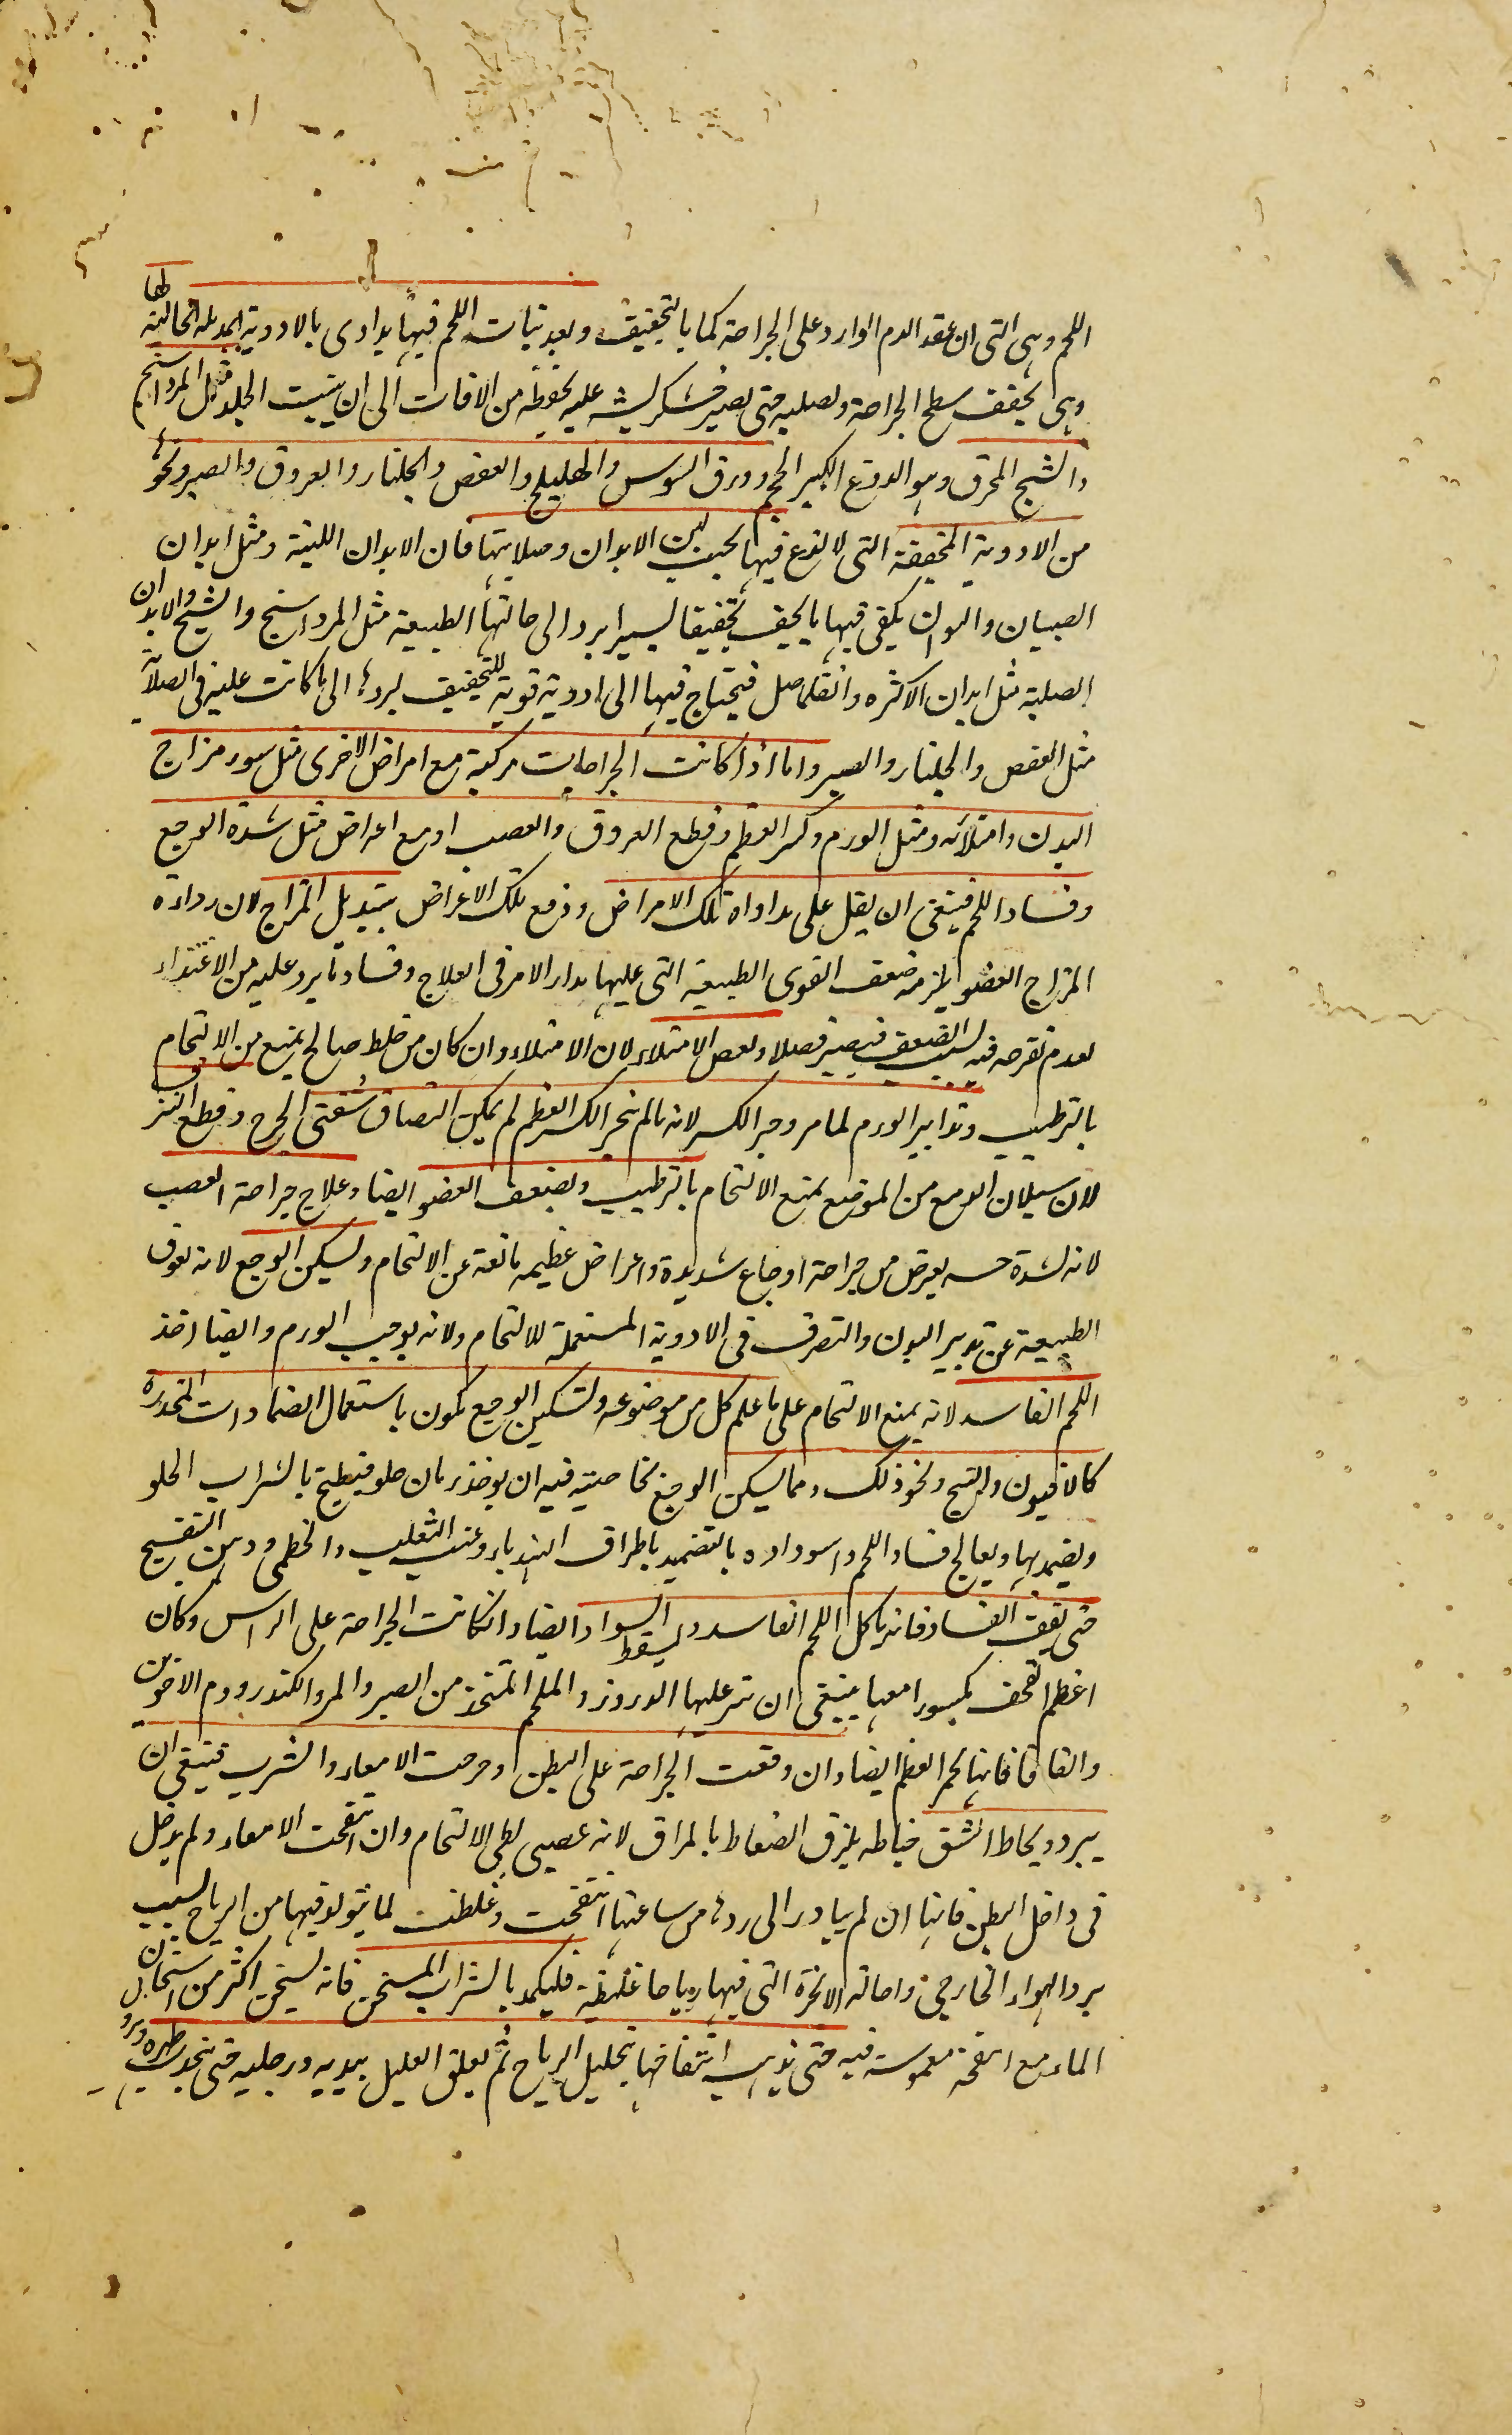 اللحم وهى التى ان عقد الدم الوارد على الجراحة كما بالتجفيف وبعد نبات اللحم فيها يداوى بالادوية المدملة الخاتمة لها
وهى يجفف سطح الجراحة ويصلبه حتى يصير خشكريشه عليه يحفظه من الافات الى ان ينبت الجلد مثل المرداسنج
والشيح المحرق وهو الودع الكبير الحجم وورق السوس والهليلج والعفص والجلنار والعروق والصبر ونحوه
من الادوية المجففة التى لا لذع فيها بحسب لين الابدان وصلابتها فان الابدان اللينة ومثل ابدان
الصبيان والنسوان يكفى فيها ما يجفف تجفيفا يسيرا يرد الى حالتها الطبيعية مثل المرداسنج والشيح والابدان
الصلبة مثل ابدان الاكثره والفلاحين فيحتاج فيها الى ادوية قوية التجفيف ليردها الى ما كانت عليه فى الصلابة
مثل العفص والجلنار والصبر واما اذا كانت الجراحات مركبة مع امراض الاخرى مثل سوء مزاج
البدن وامتلائه ومثل الورم وكسر العظم وقطع العروق والعصب او مع اعراض مثل شدة الوجع
وفساد اللحم فينبغى ان يقبل على مداواة تلك الامراض ودفع تلك الاعراض بتبديل المزاج لان رداءة
المزاج العضو يلزمه ضعف القوى الطبيعية التى عليها مدار الامر فى العلاج وفساد ما يرد عليه من الاغتذاء
لعدم تصرفه فيه بسبب الضعف فيصير فضلا ونقص الامتلاء لان الامتلاء وان كان من خلط صالح يمنع من الالتحام
بالترطيب وتدابير الورم لما مر وجبر الكسر لانه ما لم ينجبر الكسر العظم لم يمكن التصاق شفتى الجرح وقطع النزف
لان سيلان الدم مع من الموضع يمنع الالتحام بالترطيب ويضعف العضو ايضا وعلاج جراحة العصب
لانه لشدة حسه يعرض من جراحة اوجاع شديدة واعراض عظيمه مانعة عن الالتحام ويسكن الوجع لانه يعوق
الطبيعة عن تدبير البدن والتصرف فى الادوية المستعملة للالتحام ولانه يوجب الورم وايضا اخذ
اللحم الفاسد لانه يمنع الالتحام على ما علم كل من موضوعه وتسكين الوجع يكون باستعمال الضمادات المخدره
كالافيون والبنج ونحو ذلك ومما يسكن الوجع بخاصيته فيه ان يوخذ رمان حلو فيطبخ بالشراب الحلو
ويضمد بها ويعالج فساد اللحم واسوداده بالتضميد باطراف الهندباء وعنب الثعلب والخطمى ودهن البنفسج
حتى يقف الفساد فانه ياكل اللحم الفاسد ويسقط السواد ايضا وان كانت الجراحة على الراس وكان
اعظم القحف مكسورا معها ينبغى ان تنثر عليها الذرور والملحم المتخذ من الصبر والمر والكندر ودم الاخوين
والقاقيا فانها تجبر العظم ايضا وان وقعت الجراحة على البطن وخرجت الامعاء والثرب فينبغى ان
يبرد ويخاط الشق خياطه يلزق الصفاق بالمراق لانه عصبى بطى الالتحام وان انتفخت الامعاء ولم يدخل
فى داخل البطن فانها ان لم يبادر الى ردها من ساعتها انتفخت وغلظت لما يتولد فيها من الرياح بسبب
برد الهواء الخارجى واحالته الابخرة التى فيها رياحا غليظة فليكمد بالشراب المسخن فانه يسخن اكثر من اسخان
الماء مع اسفنجة مغموسة فيه حتى يذهب انتفاخها بتحليل الرياح ثم يعلق العليل بيديه ورجليه حتى يتحدب ظهره ويرد